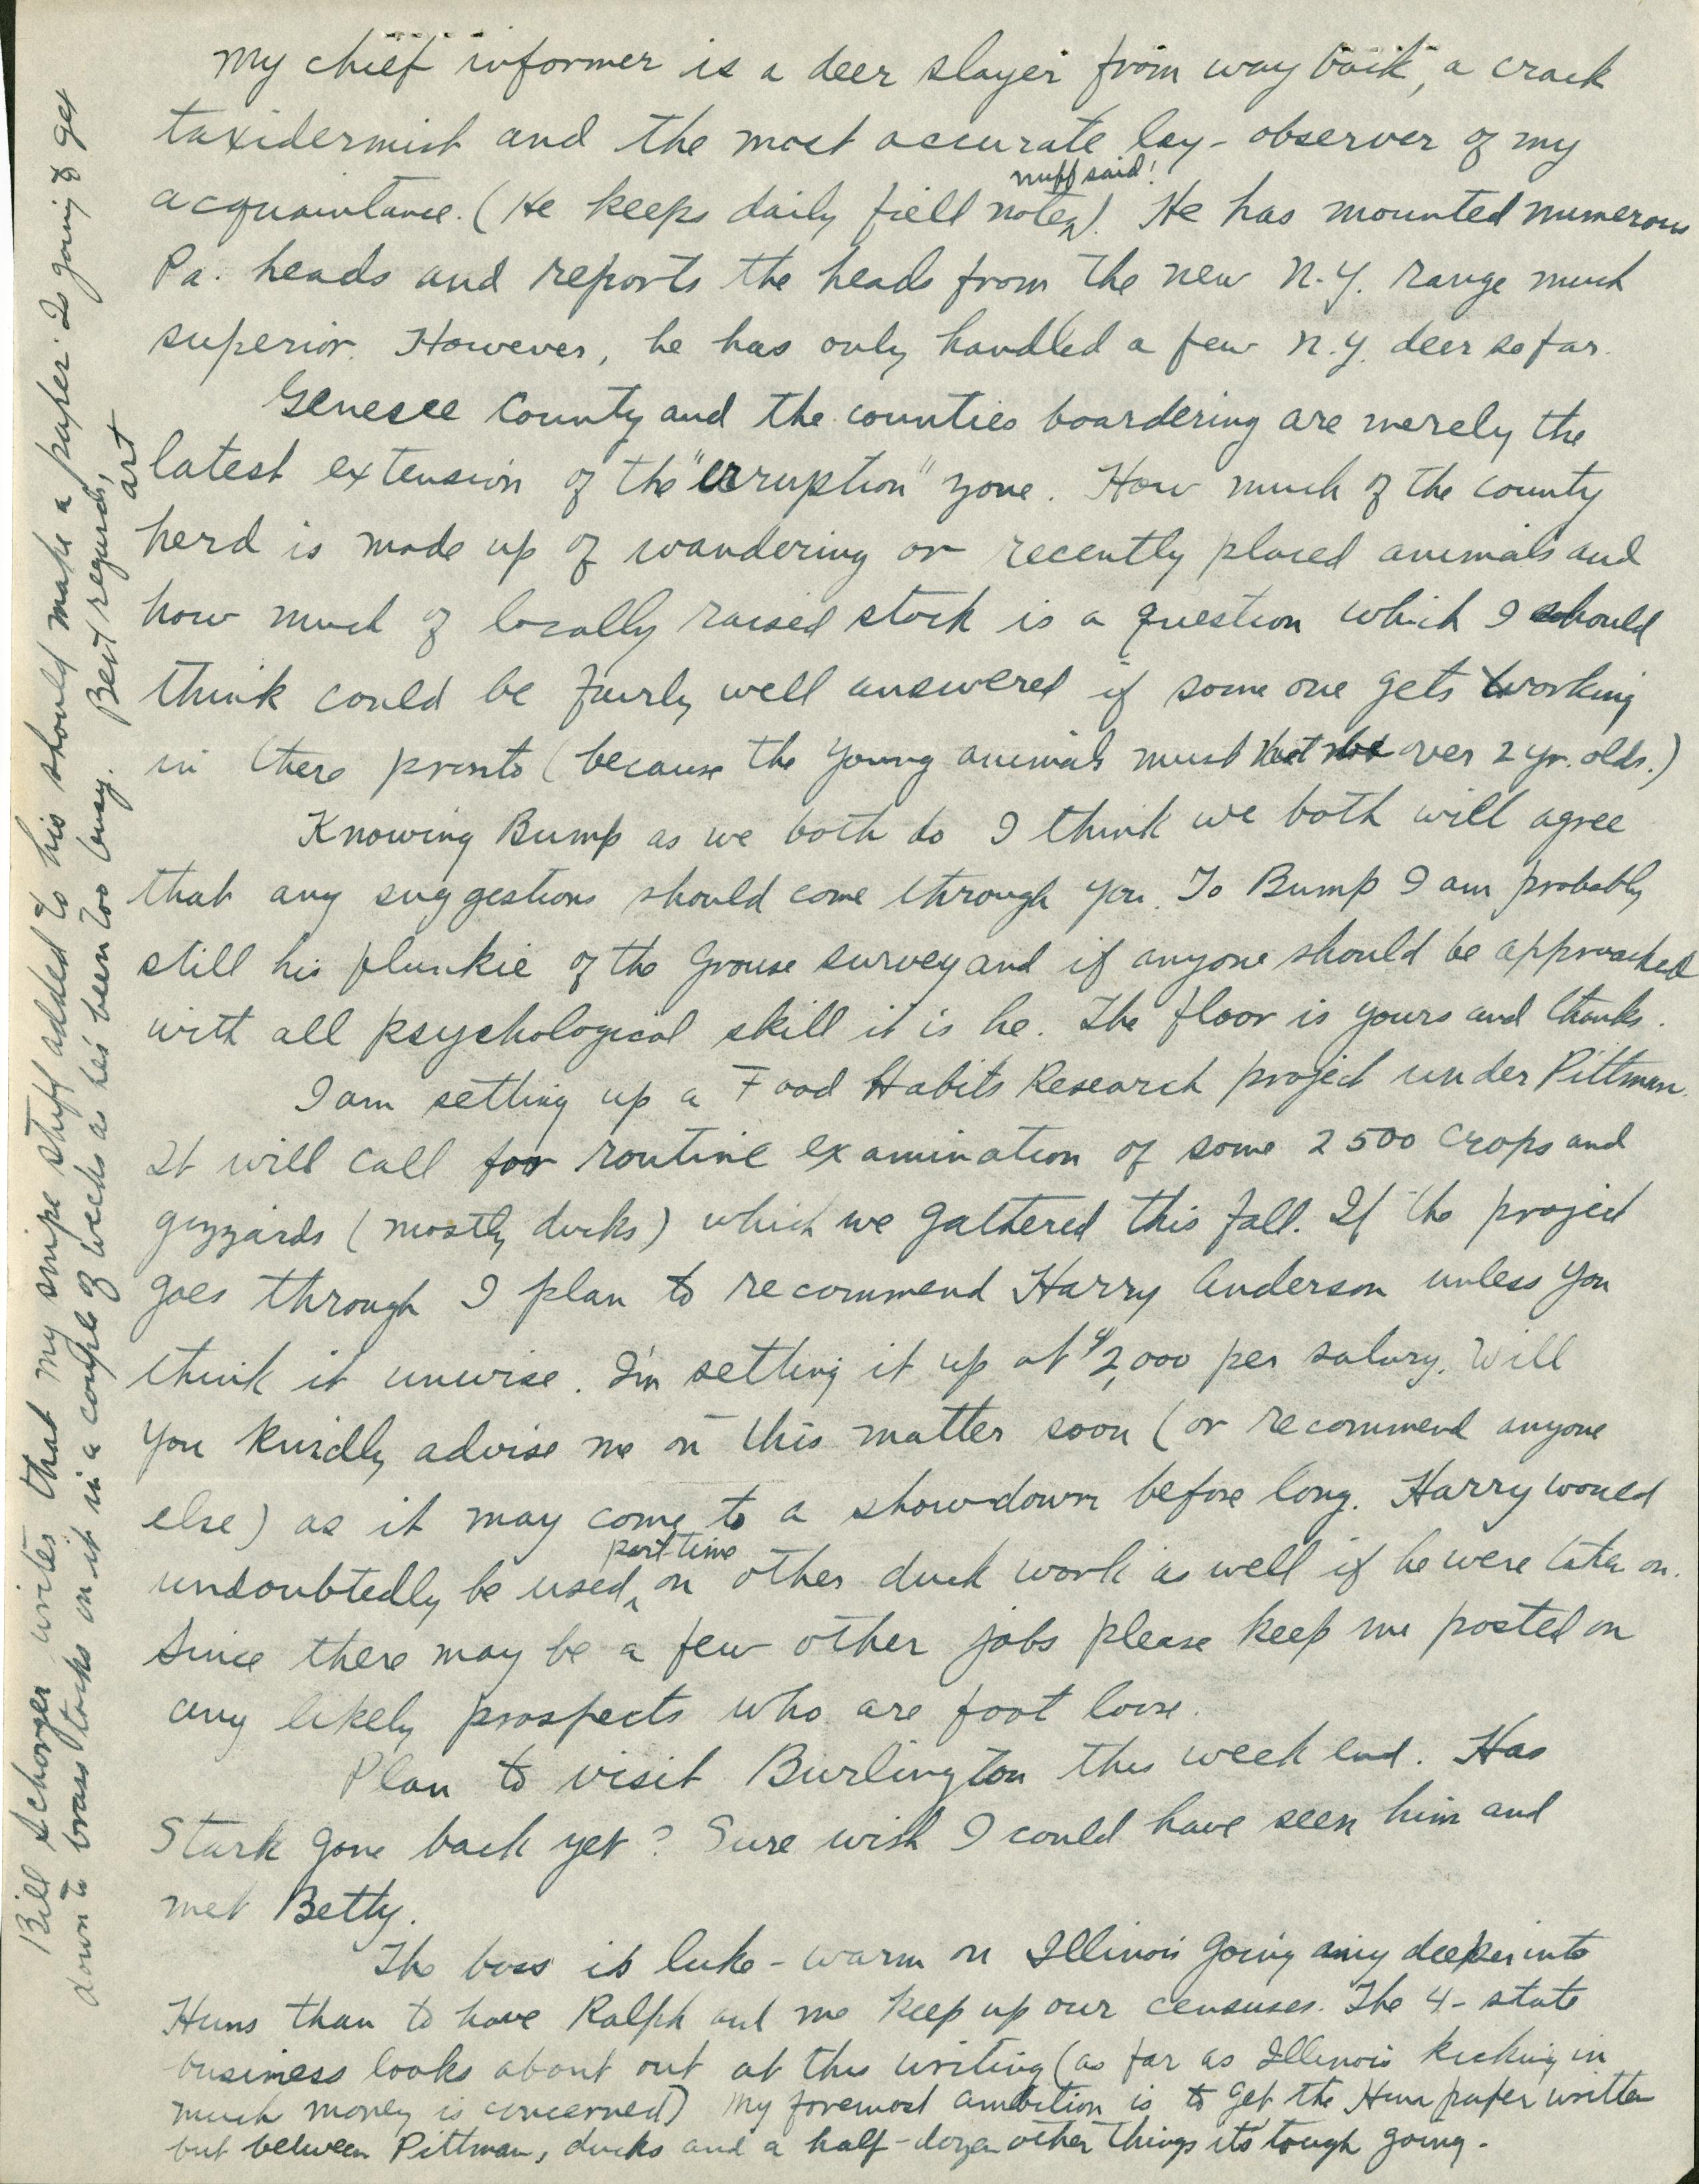 My chief informer is a deer slayer from way back, a crack
taxidermist and the most accurate lay-observer of my
nuff said!
acquaintance. (He keeps daily field notes). He has mounted numerous
Pa. heads and reports the heads from the new N.Y. range much
superior. However, he has only handled a few N.Y. deer so far.
Genesee County and the counties boardering are merely the
latest extension of the "erruption" zone. How much of the county
herd is made up of wandering or recently placed animals and
how much of locally raised stock is a question which I should
think could be fairly well answered if some one gets working
in there pronto (because the young animals must not be over 2 yr. olds.)
Knowing Bump as we both do I think we both will agree
that any suggestions should come through you. To Bump I am probably
still his flunkie of the Grouse survey and if anyone should be approached
with all psychological skill it is he. The floor is yours and thanks.
I am setting up a Food Habits Research project under Pittman.
It will call for routine examination of some 2500 crops and
gizzards (mostly ducks) which we gathered this fall. If the project
goes through I plan to recommend Harry Anderson unless you
think it unwise. I'm setting it up at $2,000 per salary. Will
you kindly advise me on this matter soon (or recommend anyone
else) as it may come to a show-down before long. Harry would
part-time
undoubtedly be used on other duck work as well if he were taken on.
Since there may be a few other jobs please keep me posted on
any likely prospects who are foot loose.
Plan to visit Burlington this week end. Has
Stark gone back yet? Sure wish I could have seen him and
met Betty.
The boss is luke-warm on Illinois going any deeper into
Huns than to have Ralph and me keep up our censuses. The 4-state
business looks about out at this writing (as far as Illinois kicking in
much money is concerned) My foremost ambition is to get the Hun paper written
but between Pittman, ducks and a half-dozen other things its tough going.
Bill Schorger writes that my snipe stuff added to his should make a paper. Is going to get
down to brass tacks on it in a couple of weeks as he's been too busy. Best regards,
Art